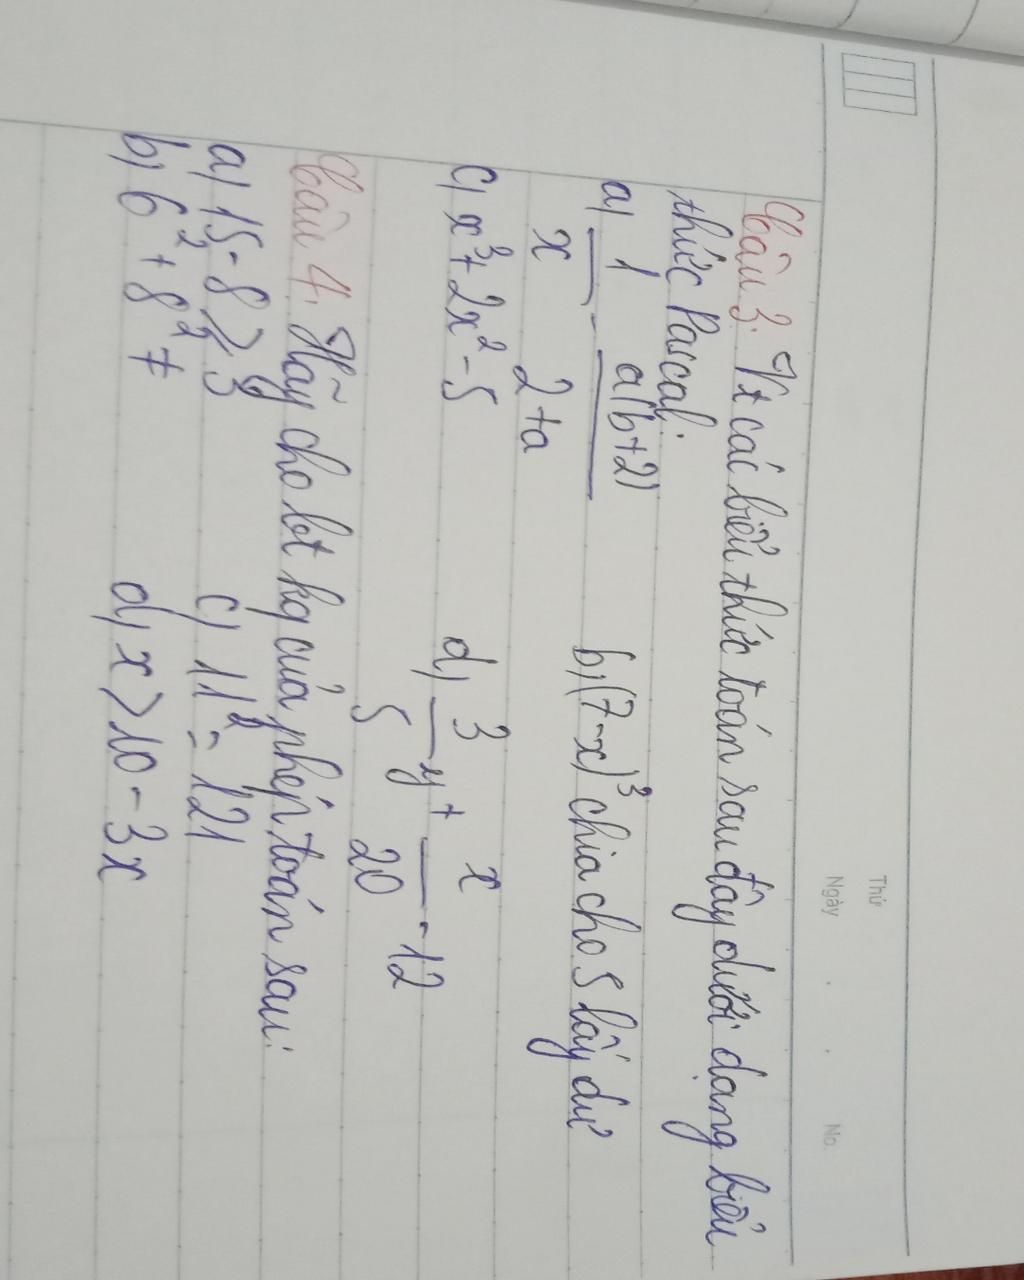 Thứ
Ngày . . No.
Câu 3: Vt các biểu thức toán sau đây dưới dạng biểu
thức Pascal:
a) 1/x - a(b+2)/2+a b) (7-x)³ chia cho 5 lấy dư
c) x³ + 2x² - 5 d) 3/5 y + x/20 - 12
Câu 4: Hãy cho bt kq của phép toán sau:
a) 15 - 8 ≥ 3 c) 11² = 121
b) 6² + 8² ≠ d) x > 10 - 3x